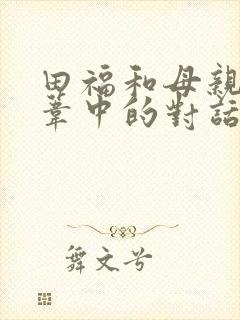 田福和母親
葦中的對話
舞文兮